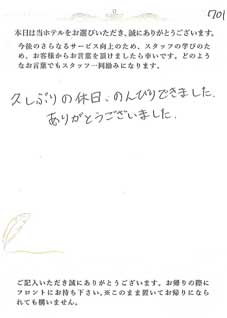 701
本日は当ホテルをお選びいただき、誠にありがとうございます。
今後のさらなるサービス向上のため、スタッフの学びのた
め、お客様からお言葉を頂けましたら幸いです。どのよう
なお言葉でもスタッフ一同励みになります。
久しぶりの休日、のんびりできました.
ありがとうございました.
ご記入いただき誠にありがとうございます。お帰りの際に
フロントにお持ち下さい。※このまま置いてお帰りになら
れても構いません。